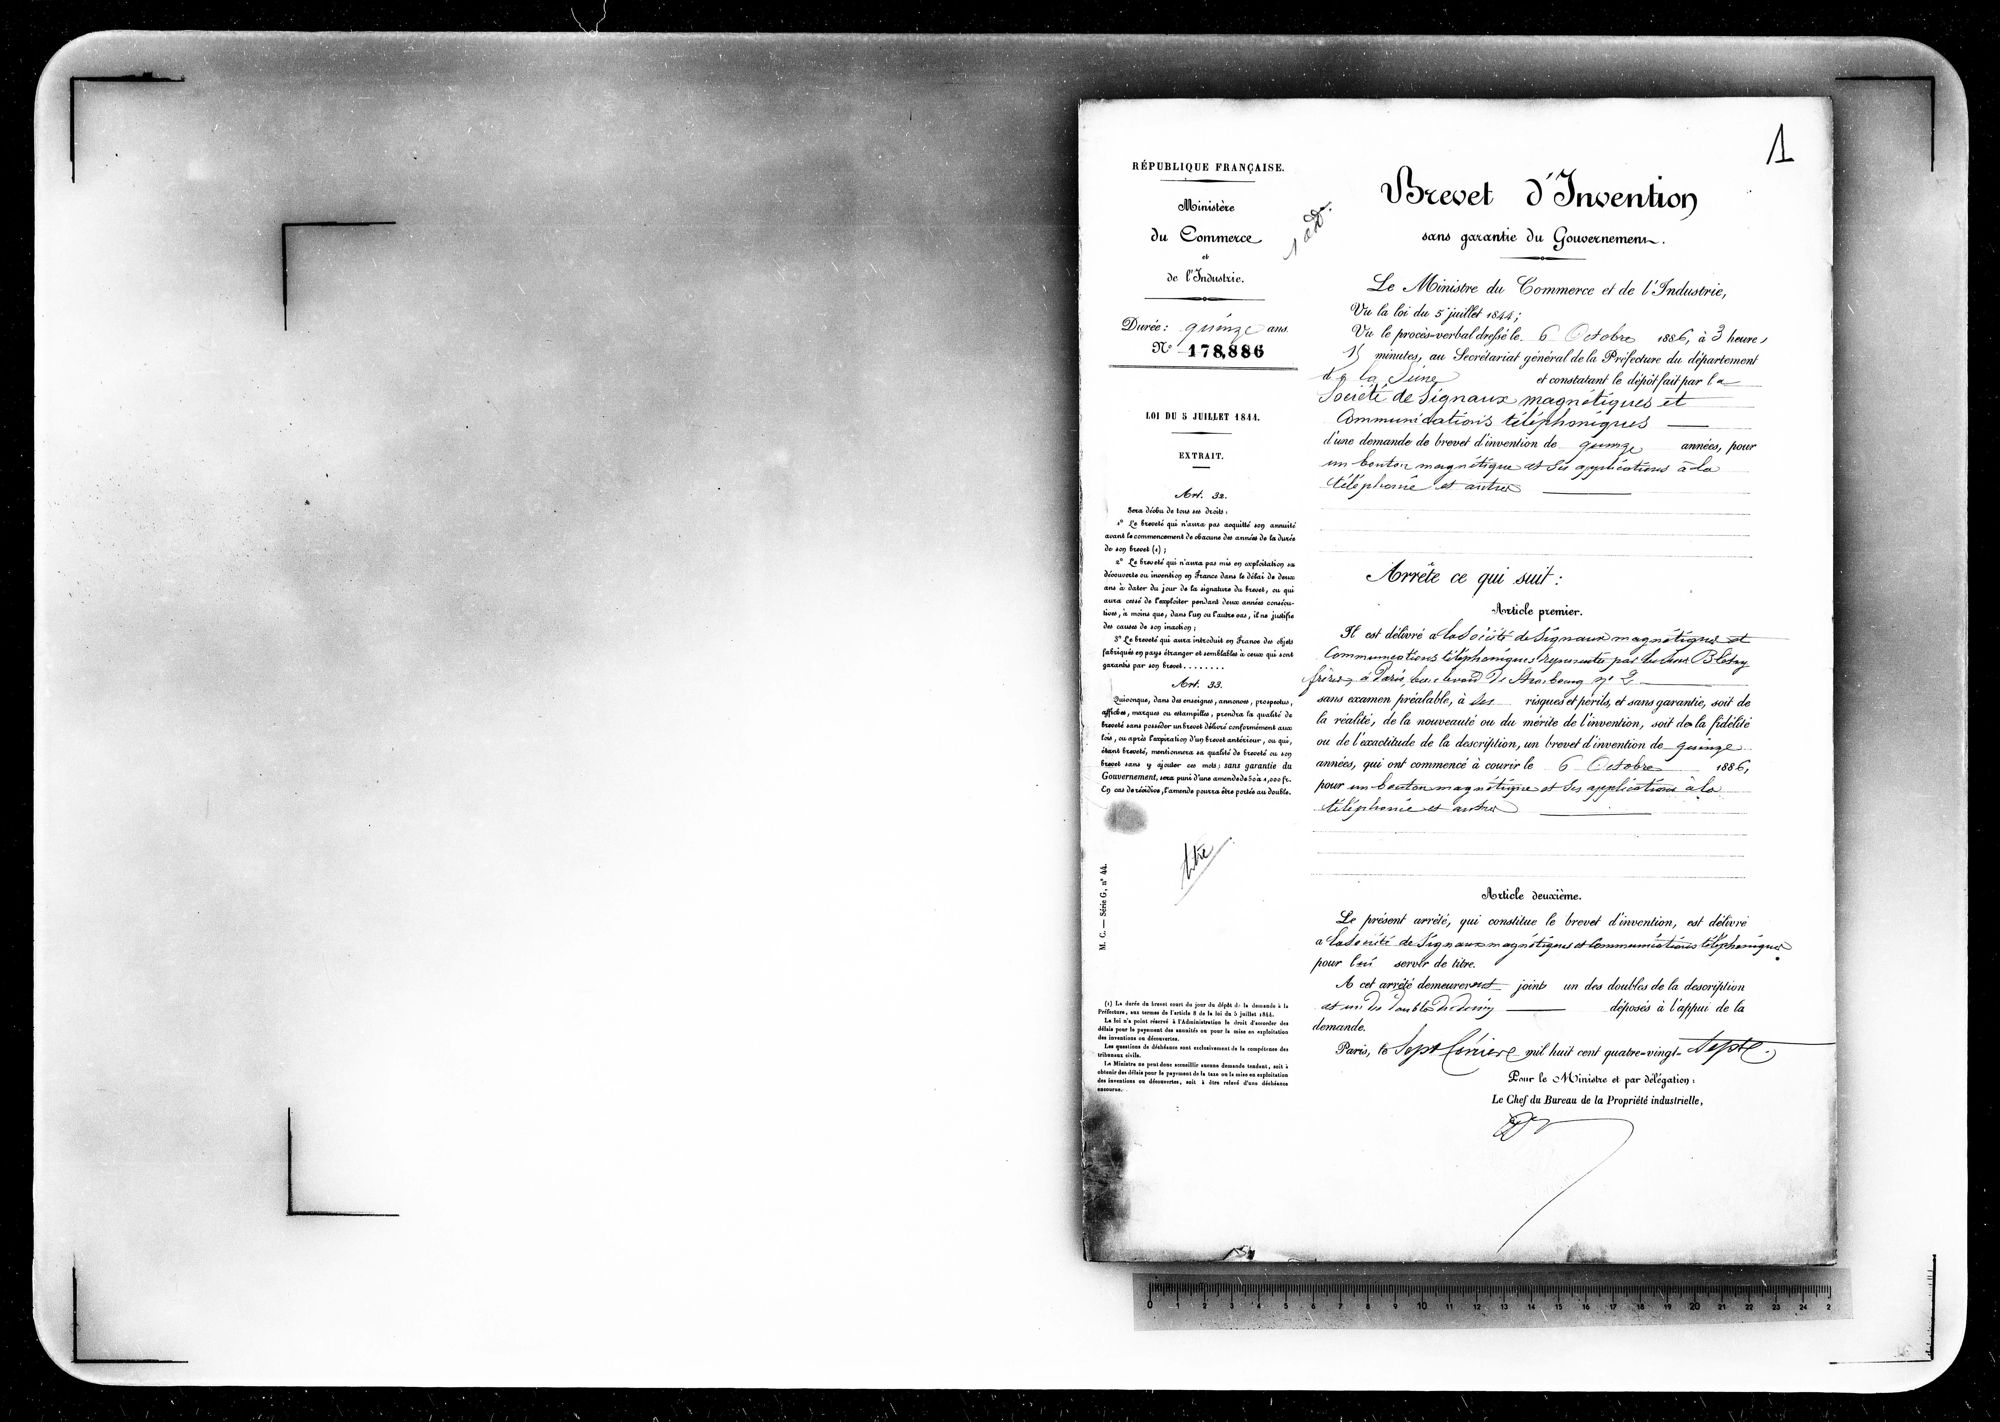 1
RÉPUBLIQUE FRANÇAISE.
Ministère
du Commerce
et
de l'Industrie.
Durée: quinze ans.
N° 178,886
LOI DU 5 JUILLET 1844.
EXTRAIT.
Art. 32.
Sera déchu de tous ses droits:
1° Le breveté qui n'aura pas acquitté son annuité
avant le commencement de chacune des années de la durée
de son brevet (1);
2° Le breveté qui n'aura pas mis en exploitation sa
découverte ou invention en France dans le délai de deux
ans à dater du jour de la signature du brevet, ou qui
aura cessé de l'exploiter pendant deux années consécu-
tives, à moins que, dans l'un ou l'autre cas, il ne justifie
des causes de son inaction;
3° Le breveté qui aura introduit en France des objets
fabriqués en pays étranger et semblables à ceux qui sont
garantis par son brevet........
Art. 33.
Quiconque, dans des enseignes, annonces, prospectus,
affiches, marques ou estampilles, prendra la qualité de
breveté sans posséder un brevet délivré conformément aux
lois, ou après l'expiration d'un brevet antérieur, ou qui,
étant breveté, mentionnera sa qualité de breveté ou son
brevet sans y ajouter ces mots; sans garantie du
Gouvernement, sera puni d'une amende de 50 à 1,000 fr.
En cas de récidive, l'amende pourra être portée au double.
titre
M. C. — Série G, n° 44.
(1) La durée du brevet court du jour du dépôt de la demande à la
Préfecture, aux termes de l'article 8 de la loi du 5 juillet 1844.
La loi n'a point réservé à l'Administration le droit d'accorder des
délais pour le payement des annuités ou pour la mise en exploitation
des inventions ou découvertes.
Les questions de déchéance sont exclusivement de la compétence des
tribunaux civils.
Le Ministre ne peut donc accueillir aucune demande tendant, soit à
obtenir des délais pour le payement de la taxe ou la mise en exploitation
des inventions ou découvertes, soit à être relevé d'une déchéance
encourue.
1 add.
Brevet d'Invention
sans garantie du Gouvernement.
Le Ministre du Commerce et de l'Industrie,
Vu la loi du 5 juillet 1844;
Vu le procès-verbal dressé le 6 Octobre 1886, à 3 heures
15 minutes, au Secrétariat général de la Préfecture du département
de la Seine et constatant le dépôt fait par la
Société de Signaux magnétiques et
Communications téléphoniques
d'une demande de brevet d'invention de quinze années, pour
un bouton magnétique et ses applications à la
téléphonie et autres
Arrête ce qui suit:
Article premier.
Il est délivré à la Société de Signaux magnétiques et
Communications téléphoniques représentée par les sieurs Blétry
frères, à Paris, boulevard de Strasbourg n° 2
sans examen préalable, à ses risques et périls, et sans garantie, soit de
la réalité, de la nouveauté ou du mérite de l'invention, soit de la fidélité
ou de l'exactitude de la description, un brevet d'invention de quinze
années, qui ont commencé à courir le 6 Octobre 1886,
pour un bouton magnétique et ses applications à la
téléphonie et autres
Article deuxième.
Le présent arrêté, qui constitue le brevet d'invention, est délivré
à la Société de Signaux magnétiques et Communications téléphoniques
pour lui servir de titre.
A cet arrêté demeureront joints un des doubles de la description
et un des doubles du dessin déposés à l'appui de la
demande.
Paris, le Sept Janvier mil huit cent quatre-vingt-Sept.
Pour le Ministre et par délégation:
Le Chef du Bureau de la Propriété industrielle,
0 1 2 3 4 5 6 7 8 9 10 11 12 13 14 15 16 17 18 19 20 21 22 23 24 2